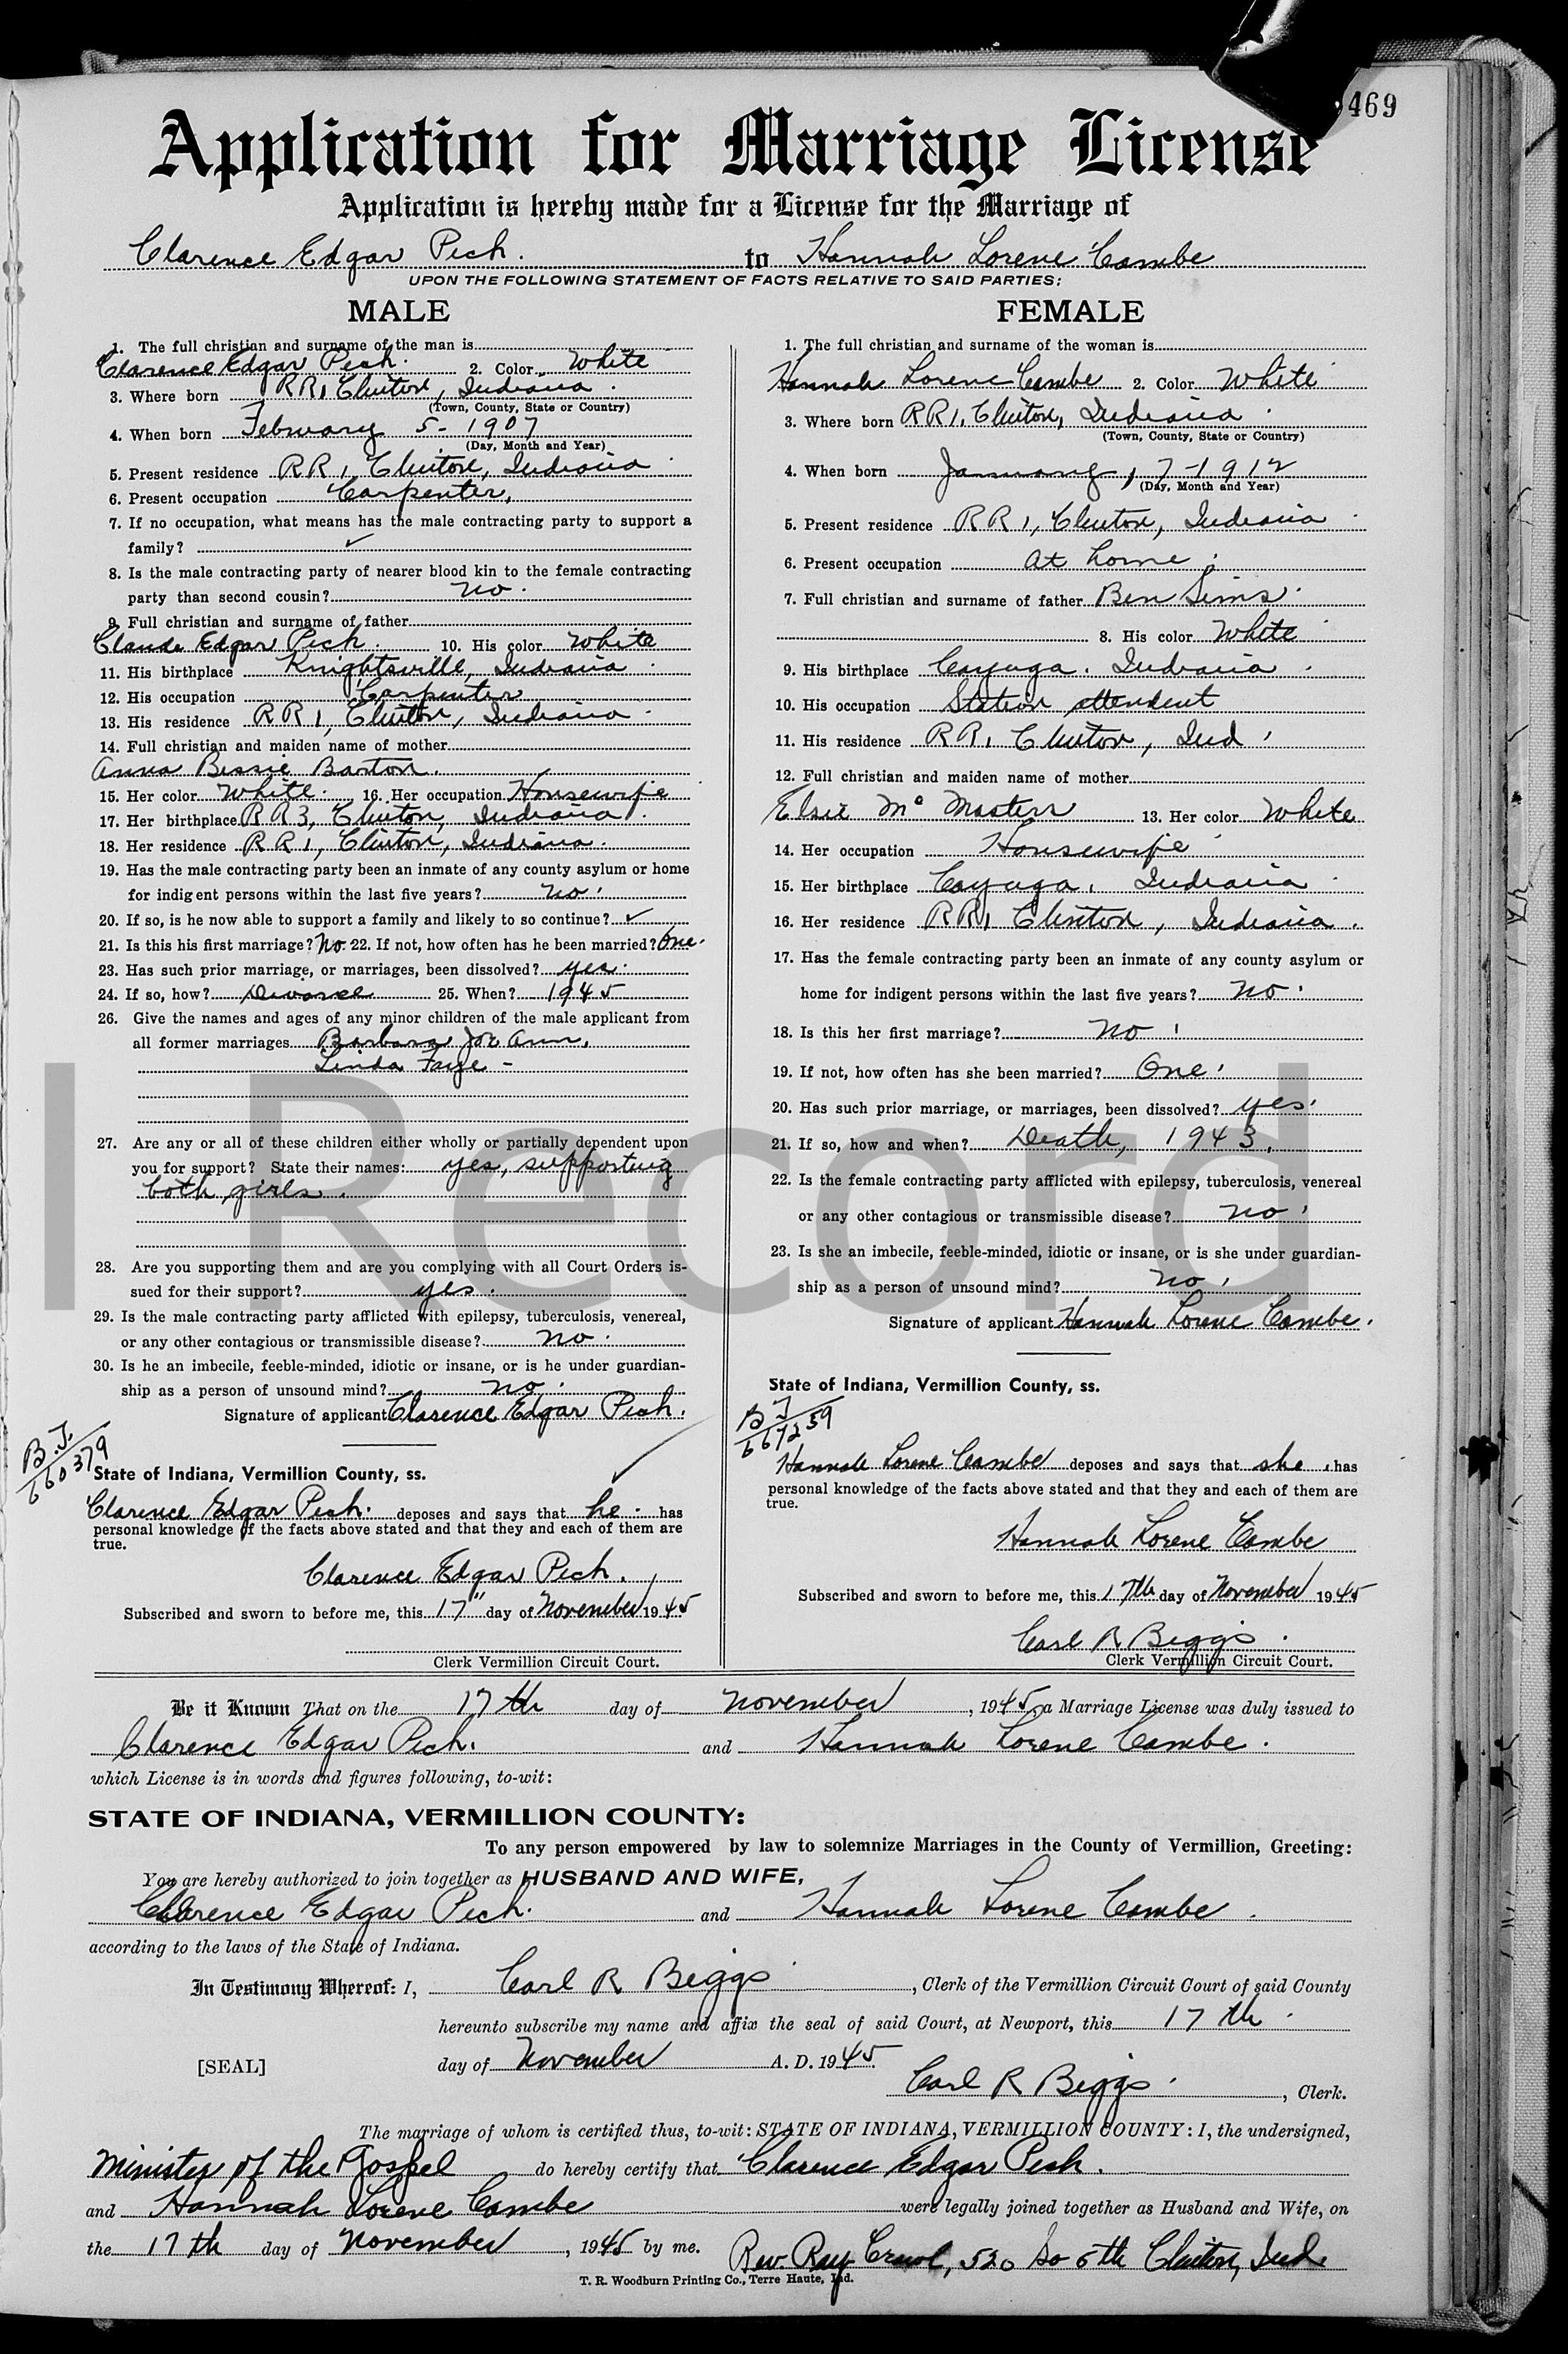 469
Application for Marriage License
Application is hereby made for a License for the Marriage of
Clarence Edgar Pesh. to Hannah Lorene Combe
UPON THE FOLLOWING STATEMENT OF FACTS RELATIVE TO SAID PARTIES:
MALE
1. The full christian and surname of the man is
Clarence Edgar Pesh. 2. Color White
3. Where born RR1 Clinton, Indiana.
(Town, County, State or Country)
4. When born February 5-1907
(Day, Month and Year)
5. Present residence RR1, Clinton, Indiana
6. Present occupation Carpenter.
7. If no occupation, what means has the male contracting party to support a
family? ✓
8. Is the male contracting party of nearer blood kin to the female contracting
party than second cousin? no.
9. Full christian and surname of father
Claude Edgar Pesh. 10. His color White
11. His birthplace Knightsville, Indiana
12. His occupation Carpenter
13. His residence RR1, Clinton, Indiana
14. Full christian and maiden name of mother
Anna Bessie Barton.
15. Her color White 16. Her occupation Housewife
17. Her birthplace RR3, Clinton, Indiana.
18. Her residence RR1, Clinton, Indiana.
19. Has the male contracting party been an inmate of any county asylum or home
for indigent persons within the last five years? no.
20. If so, is he now able to support a family and likely to so continue? ✓
21. Is this his first marriage? No. 22. If not, how often has he been married? One.
23. Has such prior marriage, or marriages, been dissolved? yes.
24. If so, how? Divorce 25. When? 1945
26. Give the names and ages of any minor children of the male applicant from
all former marriages Barbara Jo Ann,
Linda Faye -
27. Are any or all of these children either wholly or partially dependent upon
you for support? State their names: yes, supporting
both girls.
28. Are you supporting them and are you complying with all Court Orders is-
sued for their support? yes.
29. Is the male contracting party afflicted with epilepsy, tuberculosis, venereal,
or any other contagious or transmissible disease? no.
30. Is he an imbecile, feeble-minded, idiotic or insane, or is he under guardian-
ship as a person of unsound mind? no.
Signature of applicant Clarence Edgar Pesh.
B.T.
660379
State of Indiana, Vermillion County, ss.
Clarence Edgar Pesh. deposes and says that he has
personal knowledge of the facts above stated and that they and each of them are
true.
Clarence Edgar Pesh.
Subscribed and sworn to before me, this 17" day of November 1945
Clerk Vermillion Circuit Court.
FEMALE
1. The full christian and surname of the woman is
Hannah Lorene Combe 2. Color White
3. Where born RR1, Clinton, Indiana
(Town, County, State or Country)
4. When born January, 7-1912
(Day, Month and Year)
5. Present residence RR1, Clinton, Indiana
6. Present occupation at home
7. Full christian and surname of father Ben Sims
8. His color White
9. His birthplace Cayuga. Indiana
10. His occupation Station attendent
11. His residence RR1 Clinton, Ind
12. Full christian and maiden name of mother
Elsie Mc Masters 13. Her color White
14. Her occupation Housewife
15. Her birthplace Cayuga, Indiana
16. Her residence RR1 Clinton, Indiana.
17. Has the female contracting party been an inmate of any county asylum or
home for indigent persons within the last five years? no.
18. Is this her first marriage? no
19. If not, how often has she been married? One
20. Has such prior marriage, or marriages, been dissolved? yes
21. If so, how and when? Death, 1943.
22. Is the female contracting party afflicted with epilepsy, tuberculosis, venereal
or any other contagious or transmissible disease? no
23. Is she an imbecile, feeble-minded, idiotic or insane, or is she under guardian-
ship as a person of unsound mind? no
Signature of applicant Hannah Lorene Combe.
State of Indiana, Vermillion County, ss.
B T
667259
Hannah Lorene Combe deposes and says that she has
personal knowledge of the facts above stated and that they and each of them are
true.
Hannah Lorene Combe
Subscribed and sworn to before me, this 17th day of November 1945
Carl R Beggs.
Clerk Vermillion Circuit Court.
Be it Known That on the 17th day of November, 1945, a Marriage License was duly issued to
Clarence Edgar Pesh. and Hannah Lorene Combe.
which License is in words and figures following, to-wit:
STATE OF INDIANA, VERMILLION COUNTY:
To any person empowered by law to solemnize Marriages in the County of Vermillion, Greeting:
You are hereby authorized to join together as HUSBAND AND WIFE,
Clarence Edgar Pesh. and Hannah Lorene Combe.
according to the laws of the State of Indiana.
In Testimony Whereof: I, Carl R Beggs, Clerk of the Vermillion Circuit Court of said County
hereunto subscribe my name and affix the seal of said Court, at Newport, this 17th
[SEAL] day of November A. D. 1945
Carl R Beggs., Clerk.
The marriage of whom is certified thus, to-wit: STATE OF INDIANA, VERMILLION COUNTY: I, the undersigned,
Minister of the Gospel do hereby certify that Clarence Edgar Pesh.
and Hannah Lorene Combe were legally joined together as Husband and Wife, on
the 17th day of November, 1945 by me. Rev. Ray, 520 So 5th Clinton, Ind.
T. R. Woodburn Printing Co., Terre Haute, Ind.
I Record